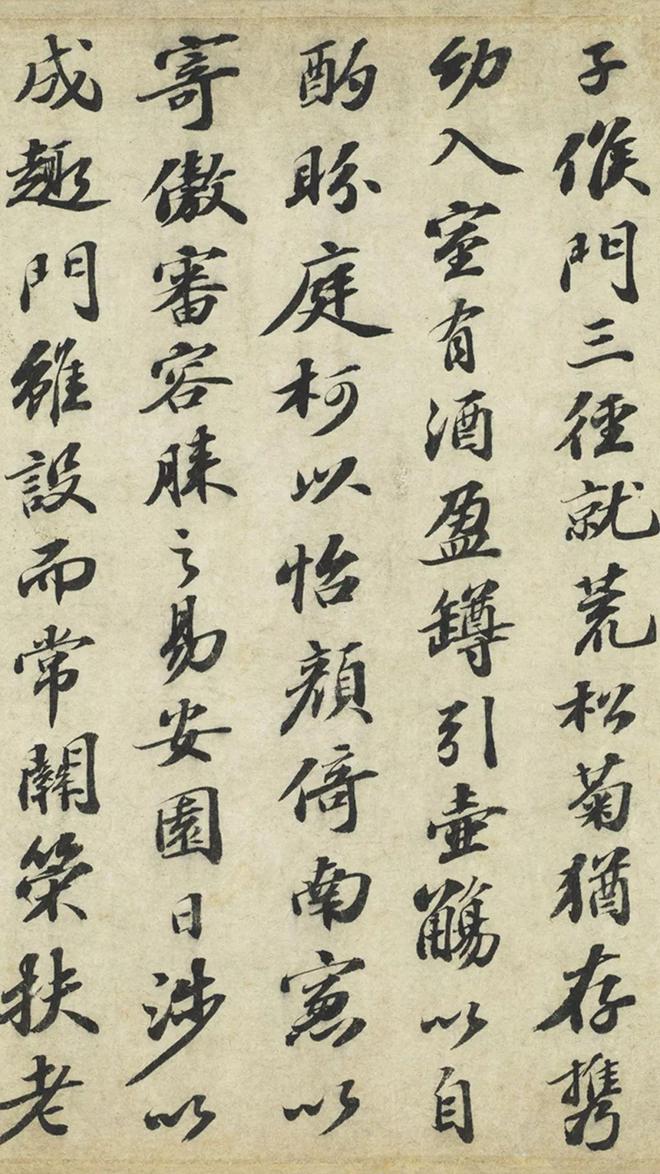 子候門三徑就荒松菊猶存携
幼入室有酒盈罇引壺觴以自
酌眄庭柯以怡顏倚南窻以
寄傲審容膝之易安園日涉以
成趣門雖設而常關策扶老